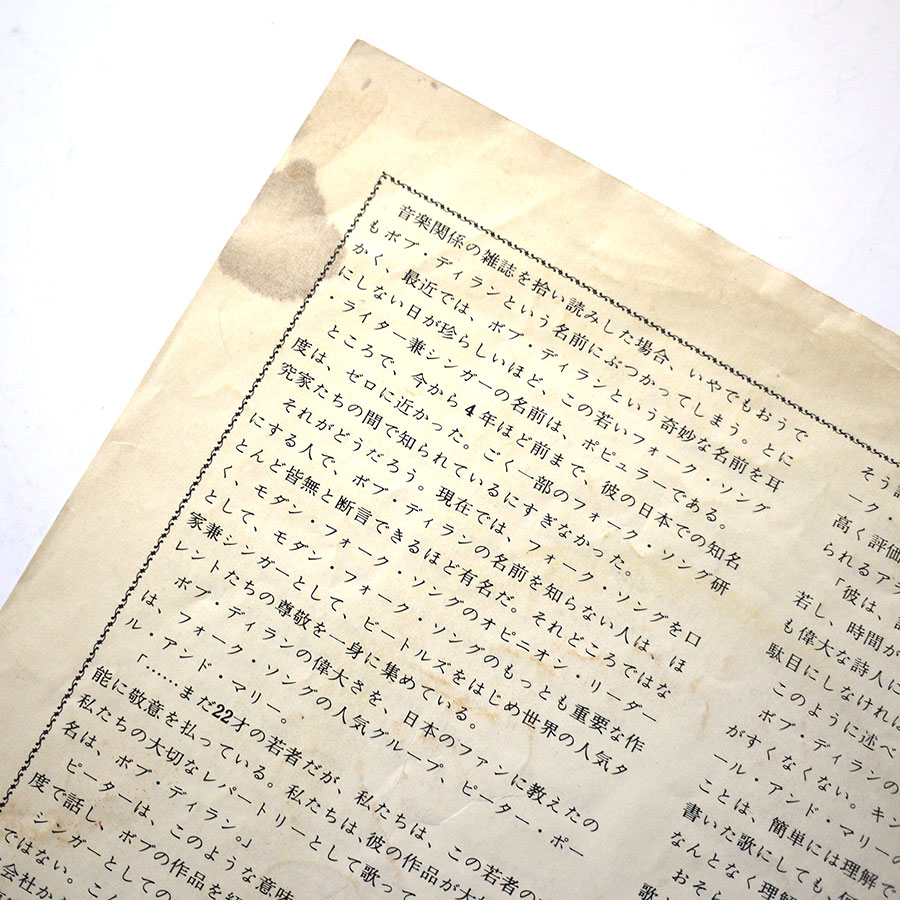 音楽関係の雑誌を拾い読みした場合、いやでもおうで
もボブ・ディランという名前にぶつかってしまう。とに
かく、最近では、ボブ・ディランという奇妙な名前を耳
にしない日が珍らしいほど、この若いフォーク・ソング
・ライター兼シンガーの名前は、ポピュラーである。
ところで、今から4年ほど前まで、彼の日本での知名
度は、ゼロに近かった。ごく一部のフォーク・ソング研
究家たちの間で知られているにすぎなかった。
それがどうだろう。現在では、フォーク・ソングを口
にする人で、ボブ・ディランの名前を知らない人は、ほ
とんど皆無と断言できるほど有名だ。それどころではな
く、モダン・フォーク・ソングのオピニオン・リーダー
として、モダン・フォーク・ソングのもっとも重要な作
家兼シンガーとして、ビートルズをはじめ世界の人気タ
レントたちの尊敬を一身に集めている。
ボブ・ディランの偉大さを、日本のファンに教えたの
は、フォーク・ソングの人気グループ、ピーター・ポー
ル・アンド・マリー。
「……まだ22才の若者だが、私たちは、この若者の
能に敬意を払っている。私たちは、彼の作品が大
私たちの大切なレパートリーとして歌って
名は、ボブ・ディラン。」
ピーターは、このような意味
度で話し、ボブの作品を
シンガーとしての
ではない。こ
会社か
そう
ーク・
高く評価
られるアラ
「彼は、
若し、時間が
も偉大な詩人に
駄目にしなければ
このように述べ
ボブ・ディランの
がすくなくない。キン
ール・アンド・マリーの
ことは、簡単には理解で
書いた歌にしても、何
なんとなく理解
おそら
歌